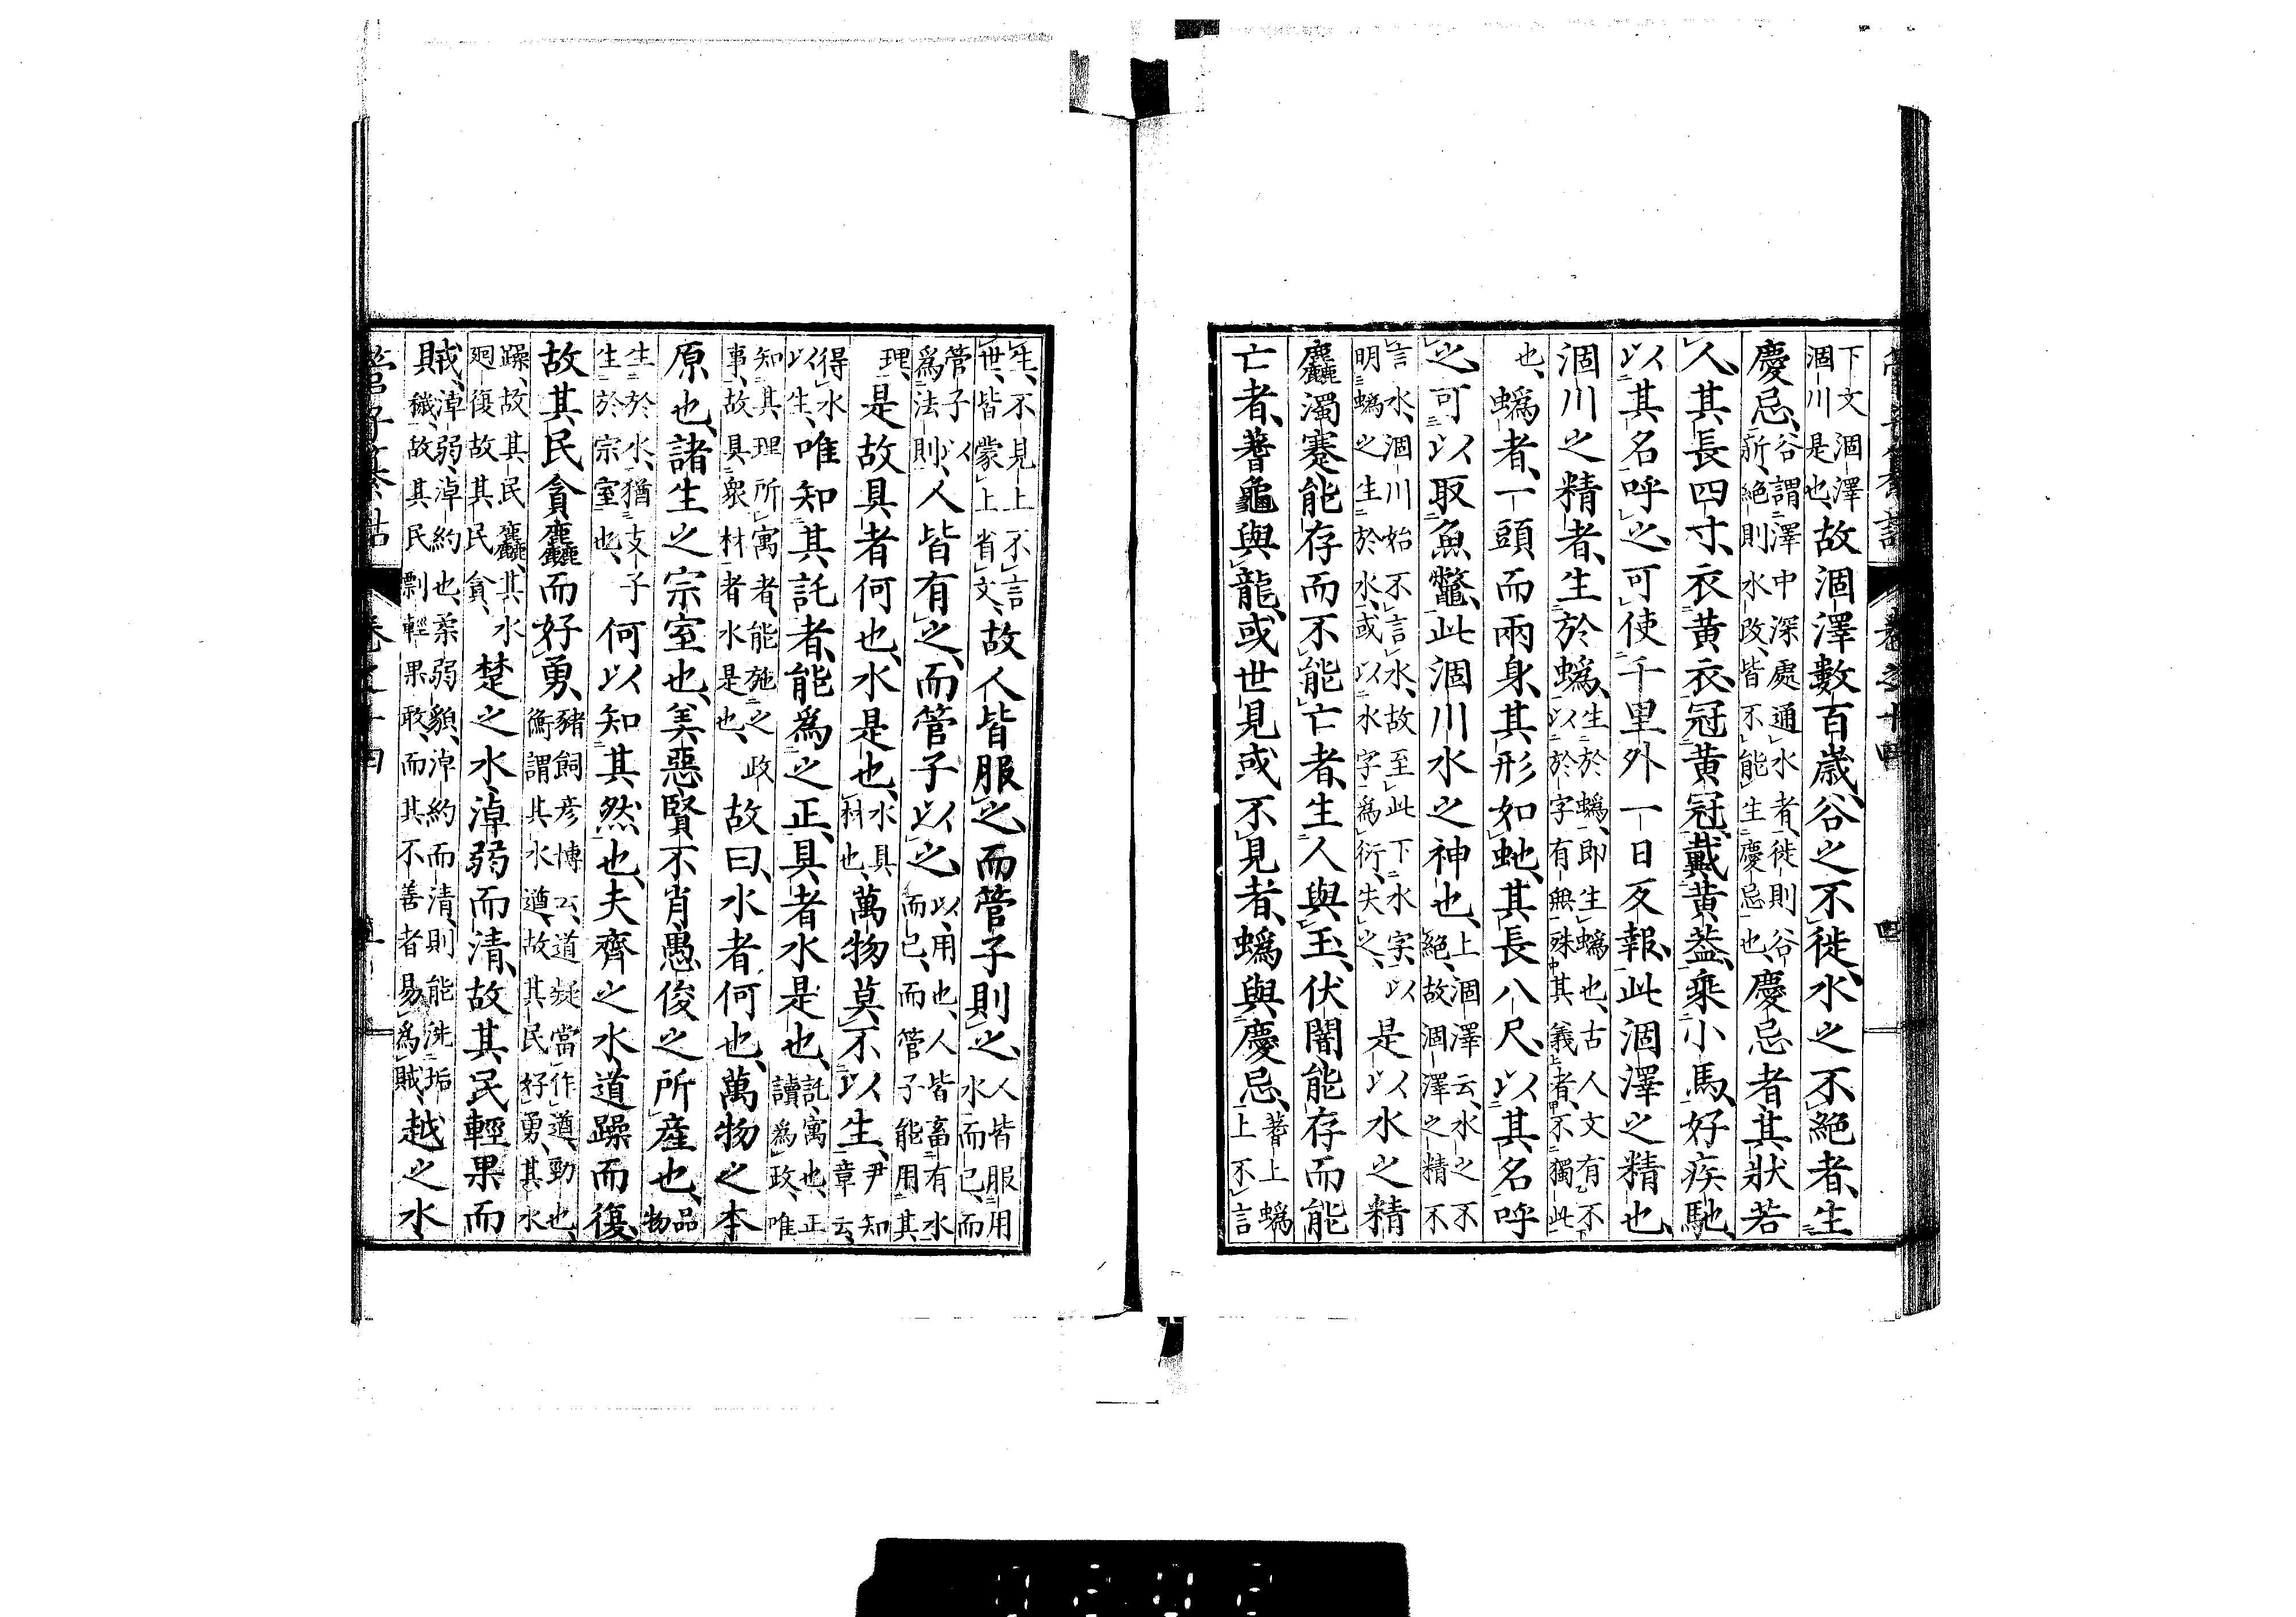 下文涸澤涸川是也、故涸澤數百歲、谷之不徙、水之不絕者、生
慶忌、谷謂澤中深處通水者、徙則谷新、絕則水改、皆不能生慶忌也、慶忌者其狀若
人、其長四寸、衣黃衣、冠黃冠、戴黃蓋、乘小馬、好疾馳、
以其名呼之、可使千里外一日反報、此涸澤之精也、
涸川之精者、生於蟡、生於蟡、即生蟡也、古人文有不以於字有無殊其義者、不獨此
也、蟡者、一頭而兩身、其形如虵、其長八尺、以其名呼
之、可以取魚鼈、此涸川水之神也、上涸澤云、水之不絕、故涸澤之精不
言水、涸川始不言水、故至此下水字、以明蟡之生於水、或以水字爲衍、失之、是以水之精
麤濁蹇、能存而不能亡者、生人與玉、伏闇能存而能
亡者、蓍龜與龍、或世見或不見者、蟡與慶忌、蓍上蟡上不言
生、不見上不言世、皆蒙上省文、故人皆服之、而管子則之、人皆服用水而已、而
管子以爲法則、人皆有之、而管子以之、以、用也、人皆畜有水而已、而管子能用其
理、是故具者何也、水是也、水具材也、萬物莫不以生、尹知章云、
得水以生、唯知其託者、能爲之正、具者水是也、託、寓也、正讀爲政、唯
知其理所寓者、能施之政事、故具衆材者水是也、故曰、水者何也、萬物之本
原也、諸生之宗室也、美惡賢不肖愚俊之所產也、品物
生於水、猶支子生於宗室也、何以知其然也、夫齊之水、道躁而復、
故其民貪麤而好勇、豬飼彥博云、道疑當作遒、勁也、衡謂其水遒、故其民好勇、其水
躁、故其民麤、其水廻復故其民貪、楚之水、淖弱而清、故其民輕果而
賊、淖弱、淖約也、柔弱貌、淖約而清、則能洗垢穢、故其民剽輕果敢、而其不善者易爲賊、越之水